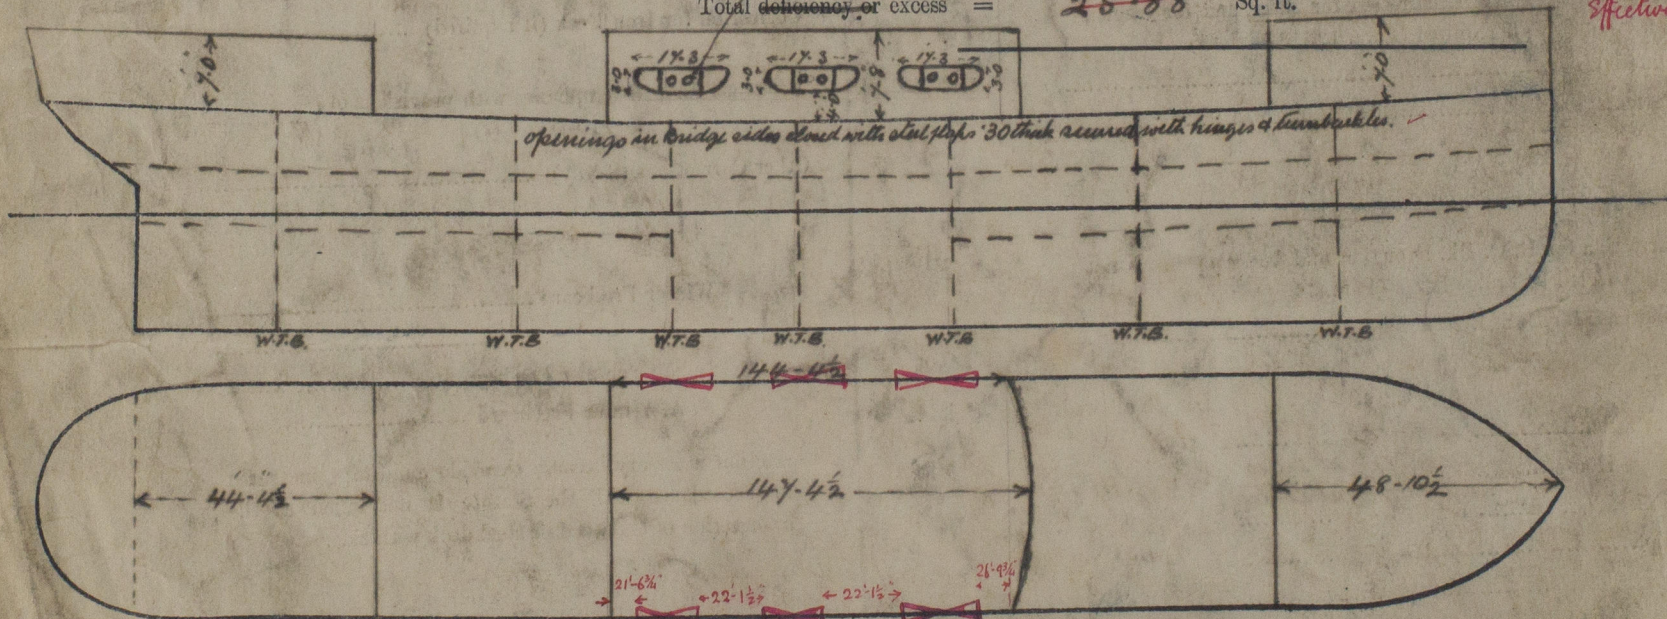 Total deficiency or excess = 25.88 Sq. ft.
Effective
7'.0"
17.3 17.3 17.3
3.0 3.0 3.0
7'.8"
7'.0"
openings in bridge sides closed with steel flaps .30 thick secured with hinges & turnbuckles.
W.T.B. W.T.B W.T.B W.T.B. W.T.B W.T.B. W.T.B
144-4½
44'-4½" 147-4½ 48-10½
21'-6¾" 22'-1½" 22'-1½" 26'-9¾"